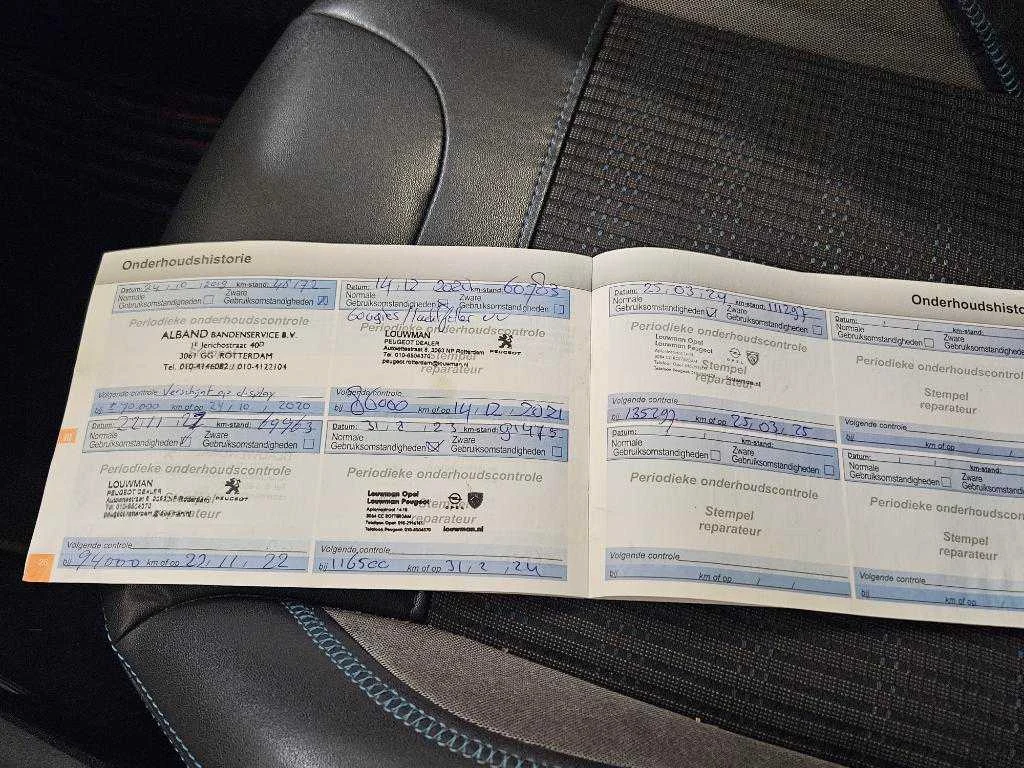 Onderhoudshistorie
Datum: 24, 10, 2019 km-stand: 48172
Normale Gebruiksomstandigheden Zware Gebruiksomstandigheden
Periodieke onderhoudscontrole
ALBAND BANDENSERVICE B.V.
Jerichostraat 40
3061 GG ROTTERDAM
Tel. 010-4146082 / 010-4122104
Volgende controle Verschijnt op display
bij ± 70.000 km of op 24, 10, 2020
Datum: 14, 12, 2020 km-stand: 60903
Normale Gebruiksomstandigheden Zware Gebruiksomstandigheden
Periodieke onderhoudscontrole
LOUWMAN
PEUGEOT DEALER
PEUGEOT
Stempel
reparateur
Volgende controle
bij 80000 km of op 14, 12, 2021
Datum: 22, 11, km-stand: 69963
Normale Gebruiksomstandigheden Zware Gebruiksomstandigheden
Periodieke onderhoudscontrole
LOUWMAN
PEUGEOT DEALER
PEUGEOT
Volgende controle
bij 94000 km of op 22, 11, 22
Datum: 31, 2, 23 km-stand: 91475
Normale Gebruiksomstandigheden Zware Gebruiksomstandigheden
Periodieke onderhoudscontrole
Louwman Opel
Louwman Peugeot
louwman.nl
reparateur
Volgende controle
bij 116500 km of op 31, 2, 24
26
Onderhoudshisto
Datum: 25, 03, 24 km-stand: 111297
Normale Gebruiksomstandigheden Zware Gebruiksomstandigheden
Periodieke onderhoudscontrole
Louwman Opel
Louwman Peugeot
Stempel
reparateur
Volgende controle
bij 135297 km of op 25, 03, 25
Datum: km-stand:
Normale Gebruiksomstandigheden Zware Gebruiksomstandigheden
Periodieke onderhoudscontrole
Stempel
reparateur
Volgende controle
bij km of op
Datum: km-stand:
Normale Gebruiksomstandigheden Zware Gebruiksomstandigheden
Periodieke onderhoudscontrole
Stempel
reparateur
Volgende controle
bij km of op
Datum: km-stand:
Normale Gebruiksomstandigheden Zware Gebruiksomstandigheden
Periodieke onderhoudscontrole
Stempel
reparateur
Volgende controle
bij km of op